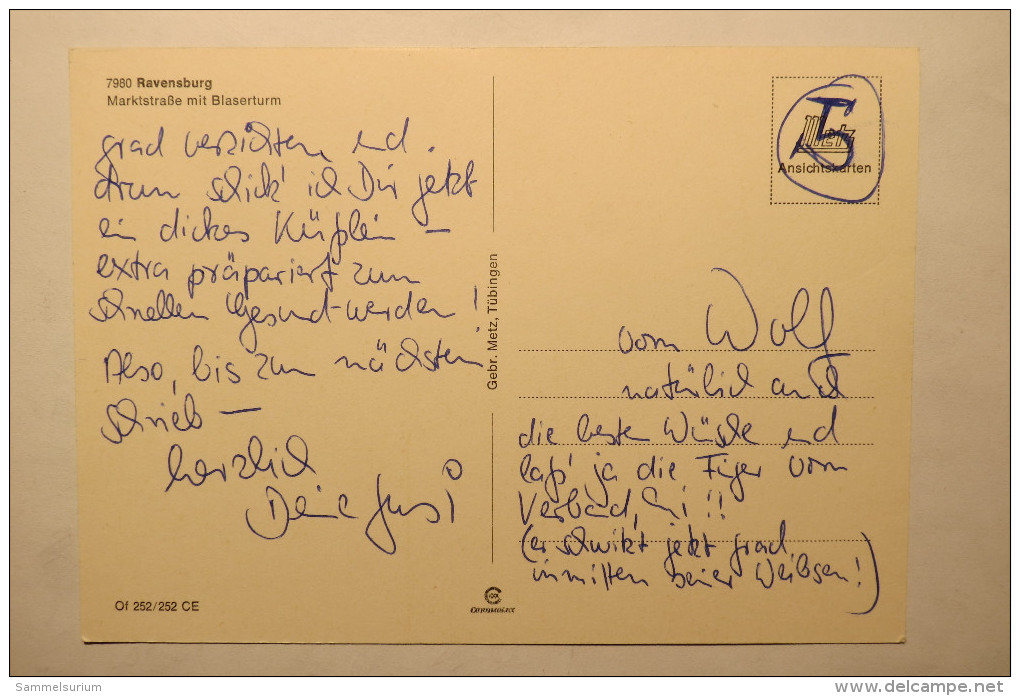 7980 Ravensburg
Marktstraße mit Blaserturm
grad verzichten, und
drum schick' ich Dir jetzt
ein dickes Küßlein –
extra präpariert zum
schnellen Gesund-werden!
Also, bis zum nächsten
Schrieb –
herzlich
Deine
Gebr. Metz, Tübingen
Metz
Ansichtskarten
5
vom Wolf
natürlich auch
die besten Wünsche und
laß' ja die Finger vom
Verband, !!
(er schwitzt jetzt grad
inmitten seiner Weibsen!)
Of 252/252 CE
Sammelsurium
www.delcampe.net